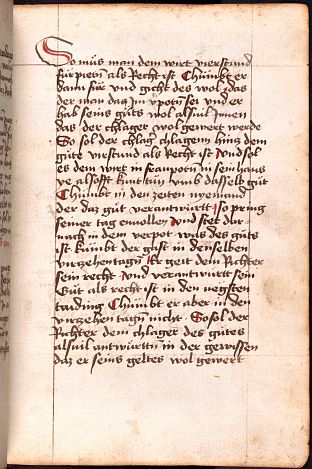 So mus man dem wirt vierstund
fürpietn als Recht ist Chumbt er
dann für und gicht des wol das
der man daz Im vpotn sei und er
hab seins guts wol alsuil Innen
das der chlager wol gewert werde
So sol der chlager chlagen hincz dem
gute vierstund als Recht ist Und sol
es dem wirt in sein haws
ye als offt kunt tun umb dasselb gut
Chumbt in den zeiten nyemand
der daz gut verantwurtt so pring
seiner tag Und ist der
nach in dem verpot was des guts
ist kumbt der gast in denselben
virzehentagn Er geit dem Richter
sein recht Und verantwurtt sein
Gut als recht ist in den negsten
taiding Chumbt er aber in den
virzehen tagn nicht So sol der
Richter dem chlager des gutes
alsuil antwurttn in der gewissen
daz er seins geltes wol gewert